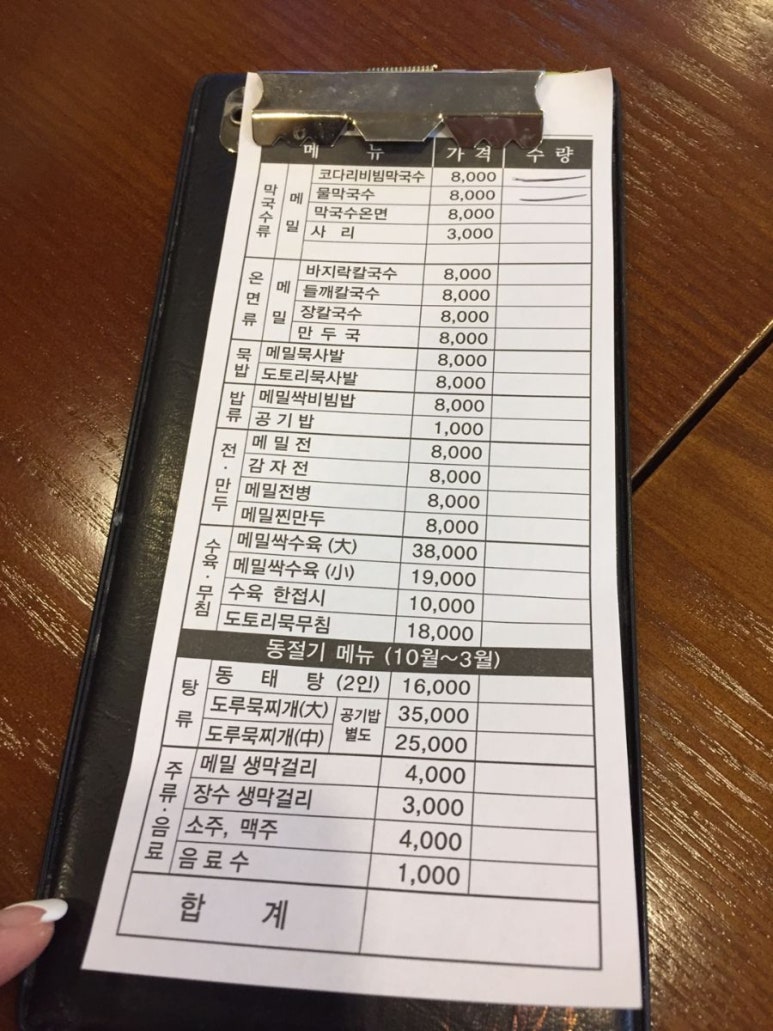 메 뉴 가 격 수 량
막국수류 메밀 코다리비빔막국수 8,000
물막국수 8,000
막국수온면 8,000
사 리 3,000
온면류 메밀 바지락칼국수 8,000
들깨칼국수 8,000
장칼국수 8,000
만 두 국 8,000
묵밥 메밀묵사발 8,000
도토리묵사발 8,000
밥류 메밀싹비빔밥 8,000
공 기 밥 1,000
전·만두 메 밀 전 8,000
감 자 전 8,000
메밀전병 8,000
메밀찐만두 8,000
수육·무침 메밀싹수육 (大) 38,000
메밀싹수육 (小) 19,000
수육 한접시 10,000
도토리묵무침 18,000
동절기 메뉴 (10월~3월)
탕류 동 태 탕 (2인) 16,000
도루묵찌개(大) 공기밥 별도 35,000
도루묵찌개(中) 25,000
주류·음료 메밀 생막걸리 4,000
장수 생막걸리 3,000
소주, 맥주 4,000
음 료 수 1,000
합 계